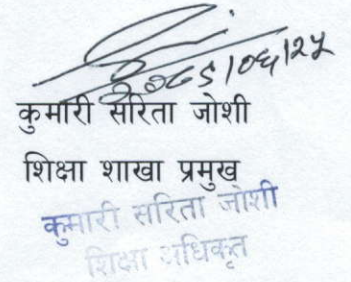 कुमारी सरिता जोशी
शिक्षा शाखा प्रमुख
कुमारी सरिता जोशी
शिक्षा अधिकृत